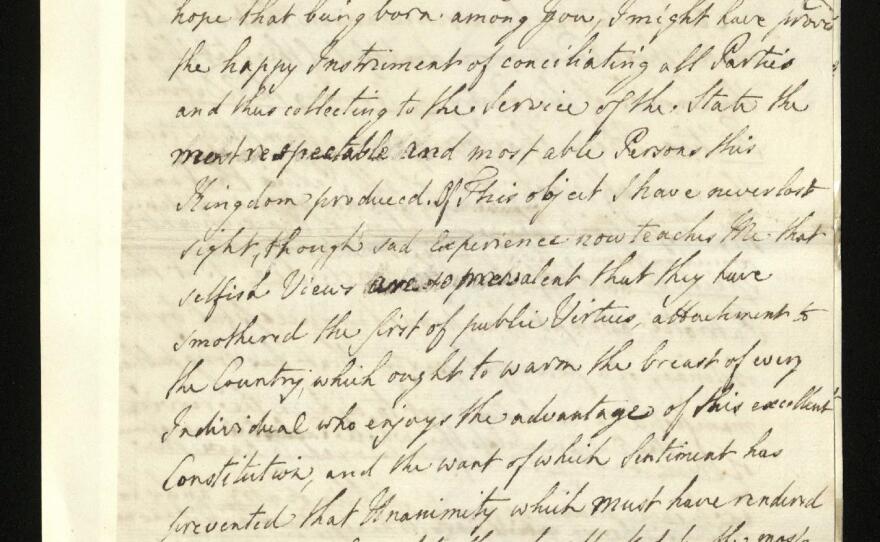 hope that being born among you, I might have proved
the happy Instrument of conciliating all Parties
and thus collecting to the Service of the State the
most respectable and most able Persons this
Kingdom produced. Of This object I have never lost
sight, though sad Experience now teaches Me that
selfish Views are so prevalent that they have
smothered the first of public Virtues, attachment to
the Country, which ought to warm the breast of every
Individual who enjoys the advantage of this excellent
Constitution, and the want of which Sentiment has
prevented that Unanimity which must have rendered
the most